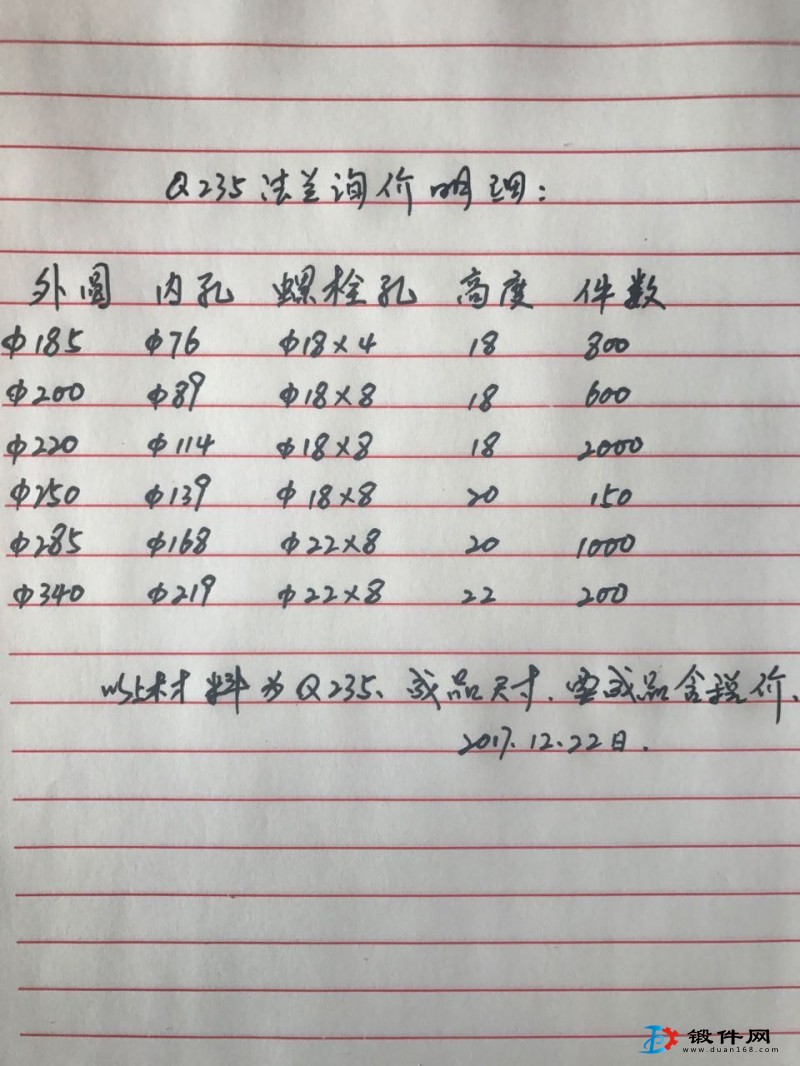 Q235法兰询价明细：
外圆 内孔 螺栓孔 高度 件数
Φ185 Φ76 Φ18×4 18 800
Φ200 Φ89 Φ18×8 18 600
Φ220 Φ114 Φ18×8 18 2000
Φ250 Φ139 Φ18×8 20 150
Φ285 Φ168 Φ22×8 20 1000
Φ340 Φ219 Φ22×8 22 200
以上材料为Q235、成品尺寸、要成品含税价、
2017.12.22日.
锻件网
www.duan168.com